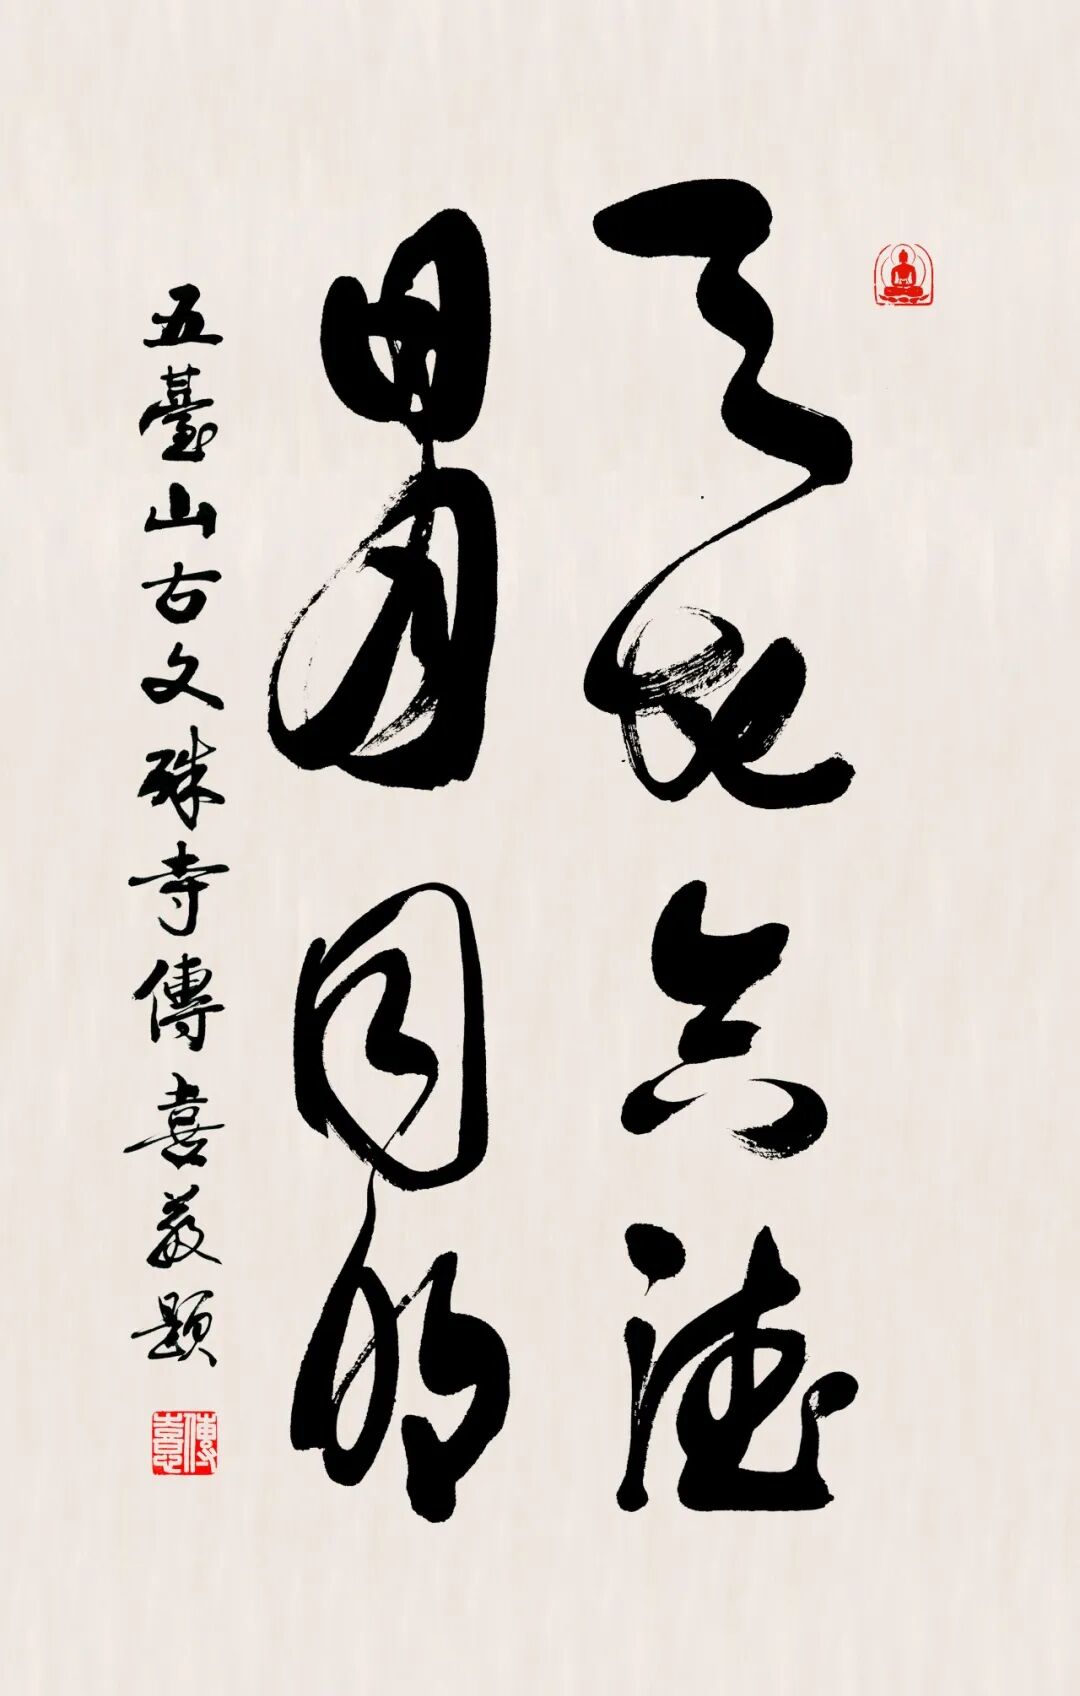 天地合德
日月同明
五臺山古文殊寺傳喜敬題
傳喜